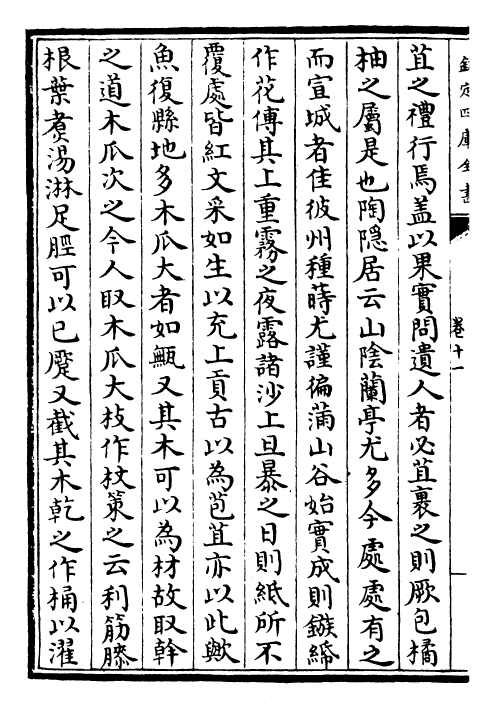 欽定四庫全書
卷十一
苴之禮行焉盖以果實問遺人者必苴裹之則厥包橘
柚之屬是也陶隠居云山陰蘭亭尤多今處處有之
而宣城者佳彼州種蒔尤謹徧滿山谷始實成則鏃綈
作花傅其上重霧之夜露諸沙上旦暴之日則紙所不
覆處皆紅文采如生以充上貢古以為苞苴亦以此歟
魚復縣地多木瓜大者如甌又其木可以為材故取幹
之道木瓜次之今人取木瓜大枝作杖策之云利筋膝
根葉煮湯淋足脛可以已蹷又截其木乾之作桶以濯